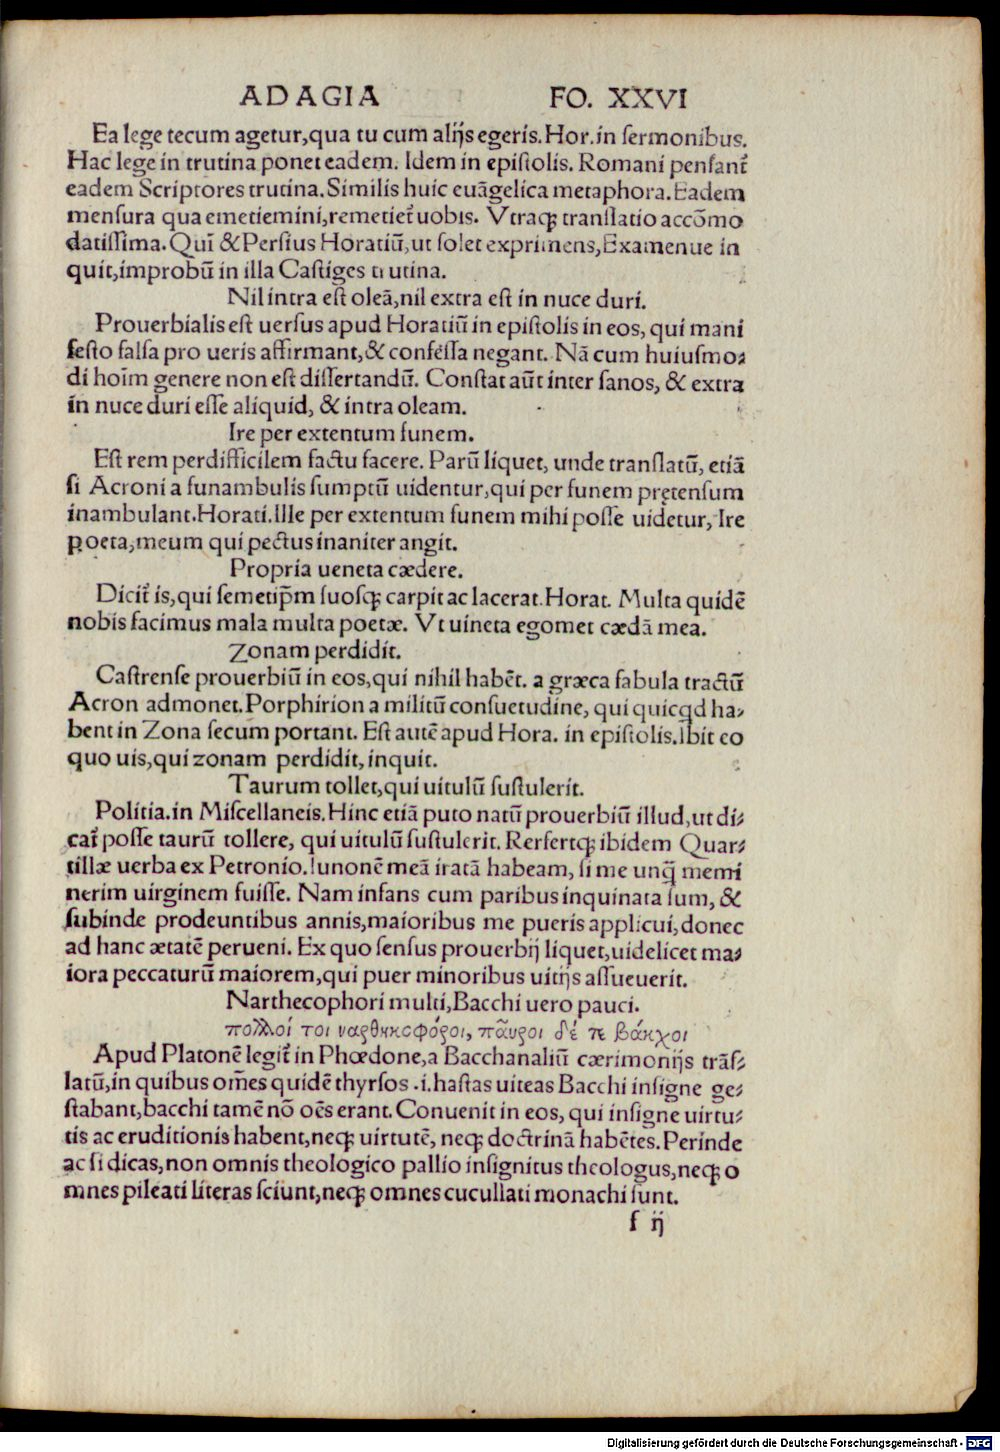 ADAGIA FO. XXVI
Ea lege tecum agetur,qua tu cum alijs egeris.Hor.in ſermonibus.
Hac lege in trutina ponet eadem. Idem in epiſtolis. Romani penſant᷑
eadem Scriptores trutina.Similis huic euãgelica metaphora.Eadem
menſura qua emetiemini,remetiet᷑ uobis. Vtraqꝫ tranſlatio accõmo
datiſſima.Quĩ &Perſius Horatiũ,ut ſolet exprimens,Examenue in
quit,improbũ in illa Caſtiges trutina.
Nil intra eſt oleã,nil extra eſt in nuce duri.
Prouerbialis eſt uerſus apud Horatiũ in epiſtolis in eos, qui mani
feſto falſa pro ueris affirmant,& confeſſa negant. Nã cum huiuſmo⸗
di hoĩm genere non eſt diſſertandũ. Conſtat aũt inter ſanos, & extra
in nuce duri eſſe aliquid, & intra oleam.
Ire per extentum funem.
Eſt rem perdifficilem factu facere. Parũ liquet, unde tranſlatũ, etiã
ſi Acroni a funambulis ſumptũ uidentur,qui per funem pretenſum
inambulant.Horati.Ille per extentum funem mihi poſſe uidetur, Ire
poeta,meum qui pectus inaniter angit.
Propria ueneta cædere.
Dicit᷑ is,qui ſemetip̃m ſuoſqꝫ carpit ac lacerat.Horat. Multa quidẽ
nobis facimus mala multa poetæ. Vt uineta egomet cædã mea.
Zonam perdidit.
Caſtrenſe prouerbiũ in eos,qui nihil habẽt. a græca fabula tractũ
Acron admonet.Porphirion a militũ conſuetudine, qui quicqd ha⸗
bent in Zona ſecum portant. Eſt autẽ apud Hora. in epiſtolis.Ibit eo
quo uis,qui zonam perdidit,inquit.
Taurum tollet,qui uitulũ ſuſtulerit.
Politia.in Miſcellaneis.Hinc etiã puto natũ prouerbiũ illud,ut di⸗
cat᷑ poſſe taurũ tollere, qui uitulũ ſuſtulerit. Rerfertqꝫ ibidem Quar⸗
tillæ uerba ex Petronio.Iunonẽ meã iratã habeam, ſi me unq̃ memi
nerim uirginem fuiſſe. Nam infans cum paribus inquinata ſum, &
ſubinde prodeuntibus annis,maioribus me pueris applicui,donec
ad hanc ætatẽ perueni. Ex quo ſenſus prouerbij liquet,uidelicet ma⸗
iora peccaturũ maiorem,qui puer minoribus uitijs aſſueuerit.
Narthecophori multi,Bacchi uero pauci.
πολλοί τοι ναρθηκοφόροι, παῦροι δέ τε βάκχοι
Apud Platonẽ legit᷑ in Phœdone,a Bacchanaliũ cærimonijs trãſ⸗
latũ,in quibus om̃es quidẽ thyrſos .i.haſtas uiteas Bacchi inſigne ge⸗
ſtabant,bacchi tamẽ nõ oẽs erant. Conuenit in eos, qui inſigne uirtu⸗
tis ac eruditionis habent,neqꝫ uirtutẽ, neqꝫ doctrinã habẽtes.Perinde
ac ſi dicas,non omnis theologico pallio inſignitus theologus,neqꝫ o
mnes pileati literas ſciunt,neqꝫ omnes cucullati monachi ſunt.
f ij
Digitalisierung gefördert durch die Deutsche Forschungsgemeinschaft - DFG